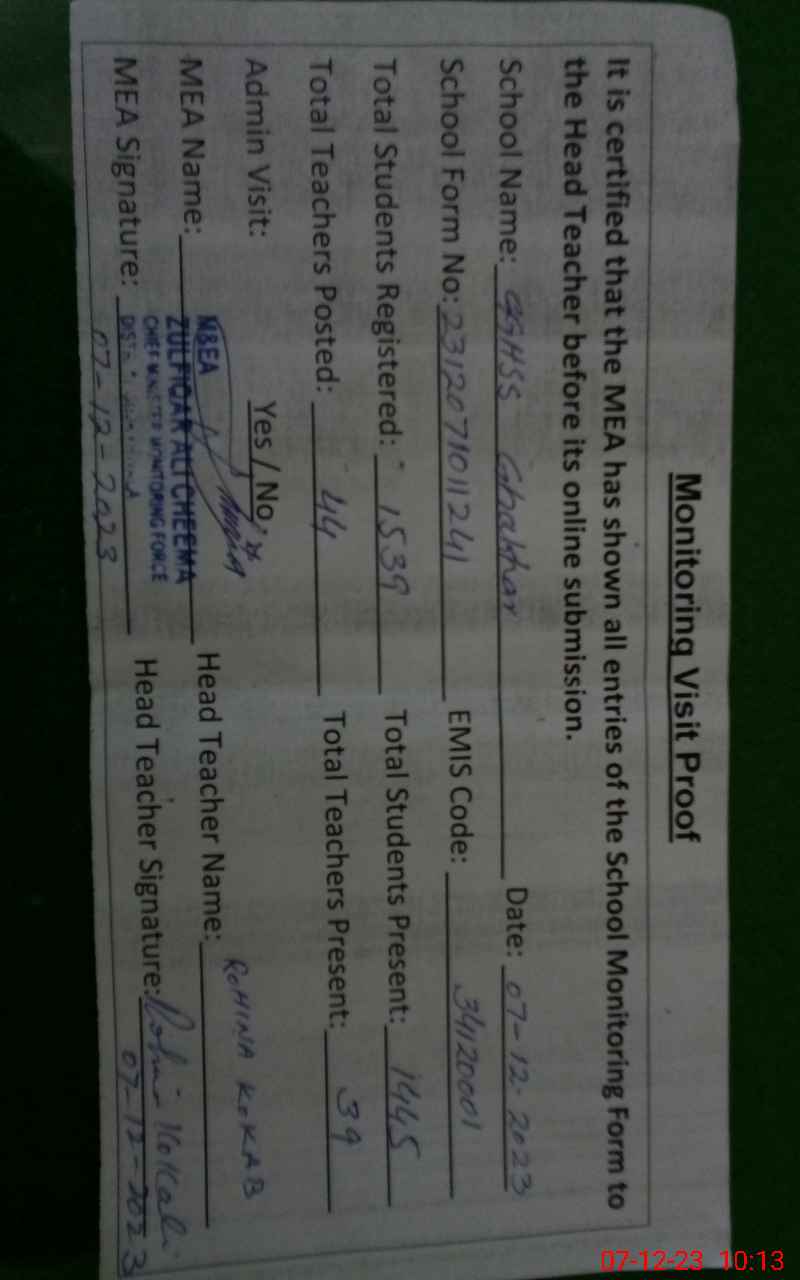 Monitoring Visit Proof
It is certified that the MEA has shown all entries of the School Monitoring Form to
the Head Teacher before its online submission.
School Name: GGHSS Ghakhar Date: 07-12-2023
School Form No: 231207101241 EMIS Code: 34120001
Total Students Registered: 1539 Total Students Present: 1445
Total Teachers Posted: 44 Total Teachers Present: 39
Admin Visit: Yes / No
MEA Name: M&EA Head Teacher Name: ROHINA KOKAB
ZULFIQAR ALI CHEEMA
CHIEF MINISTER MONITORING FORCE
MEA Signature: DISTT. Head Teacher Signature: Rohina Kokab
07-12-2023 07-12-2023
07-12-23 10:13